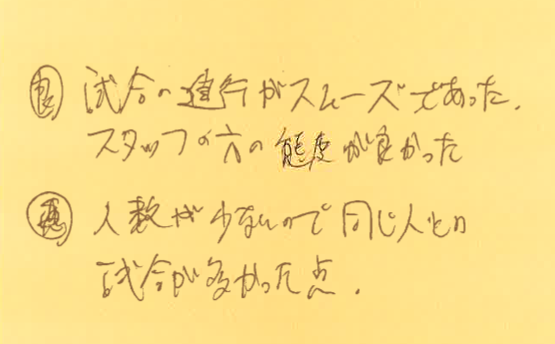 良 試合の進行がスムーズであった。
スタッフの方の態度が良かった
悪 人数が少ないので同じ人との
試合が多かった点。